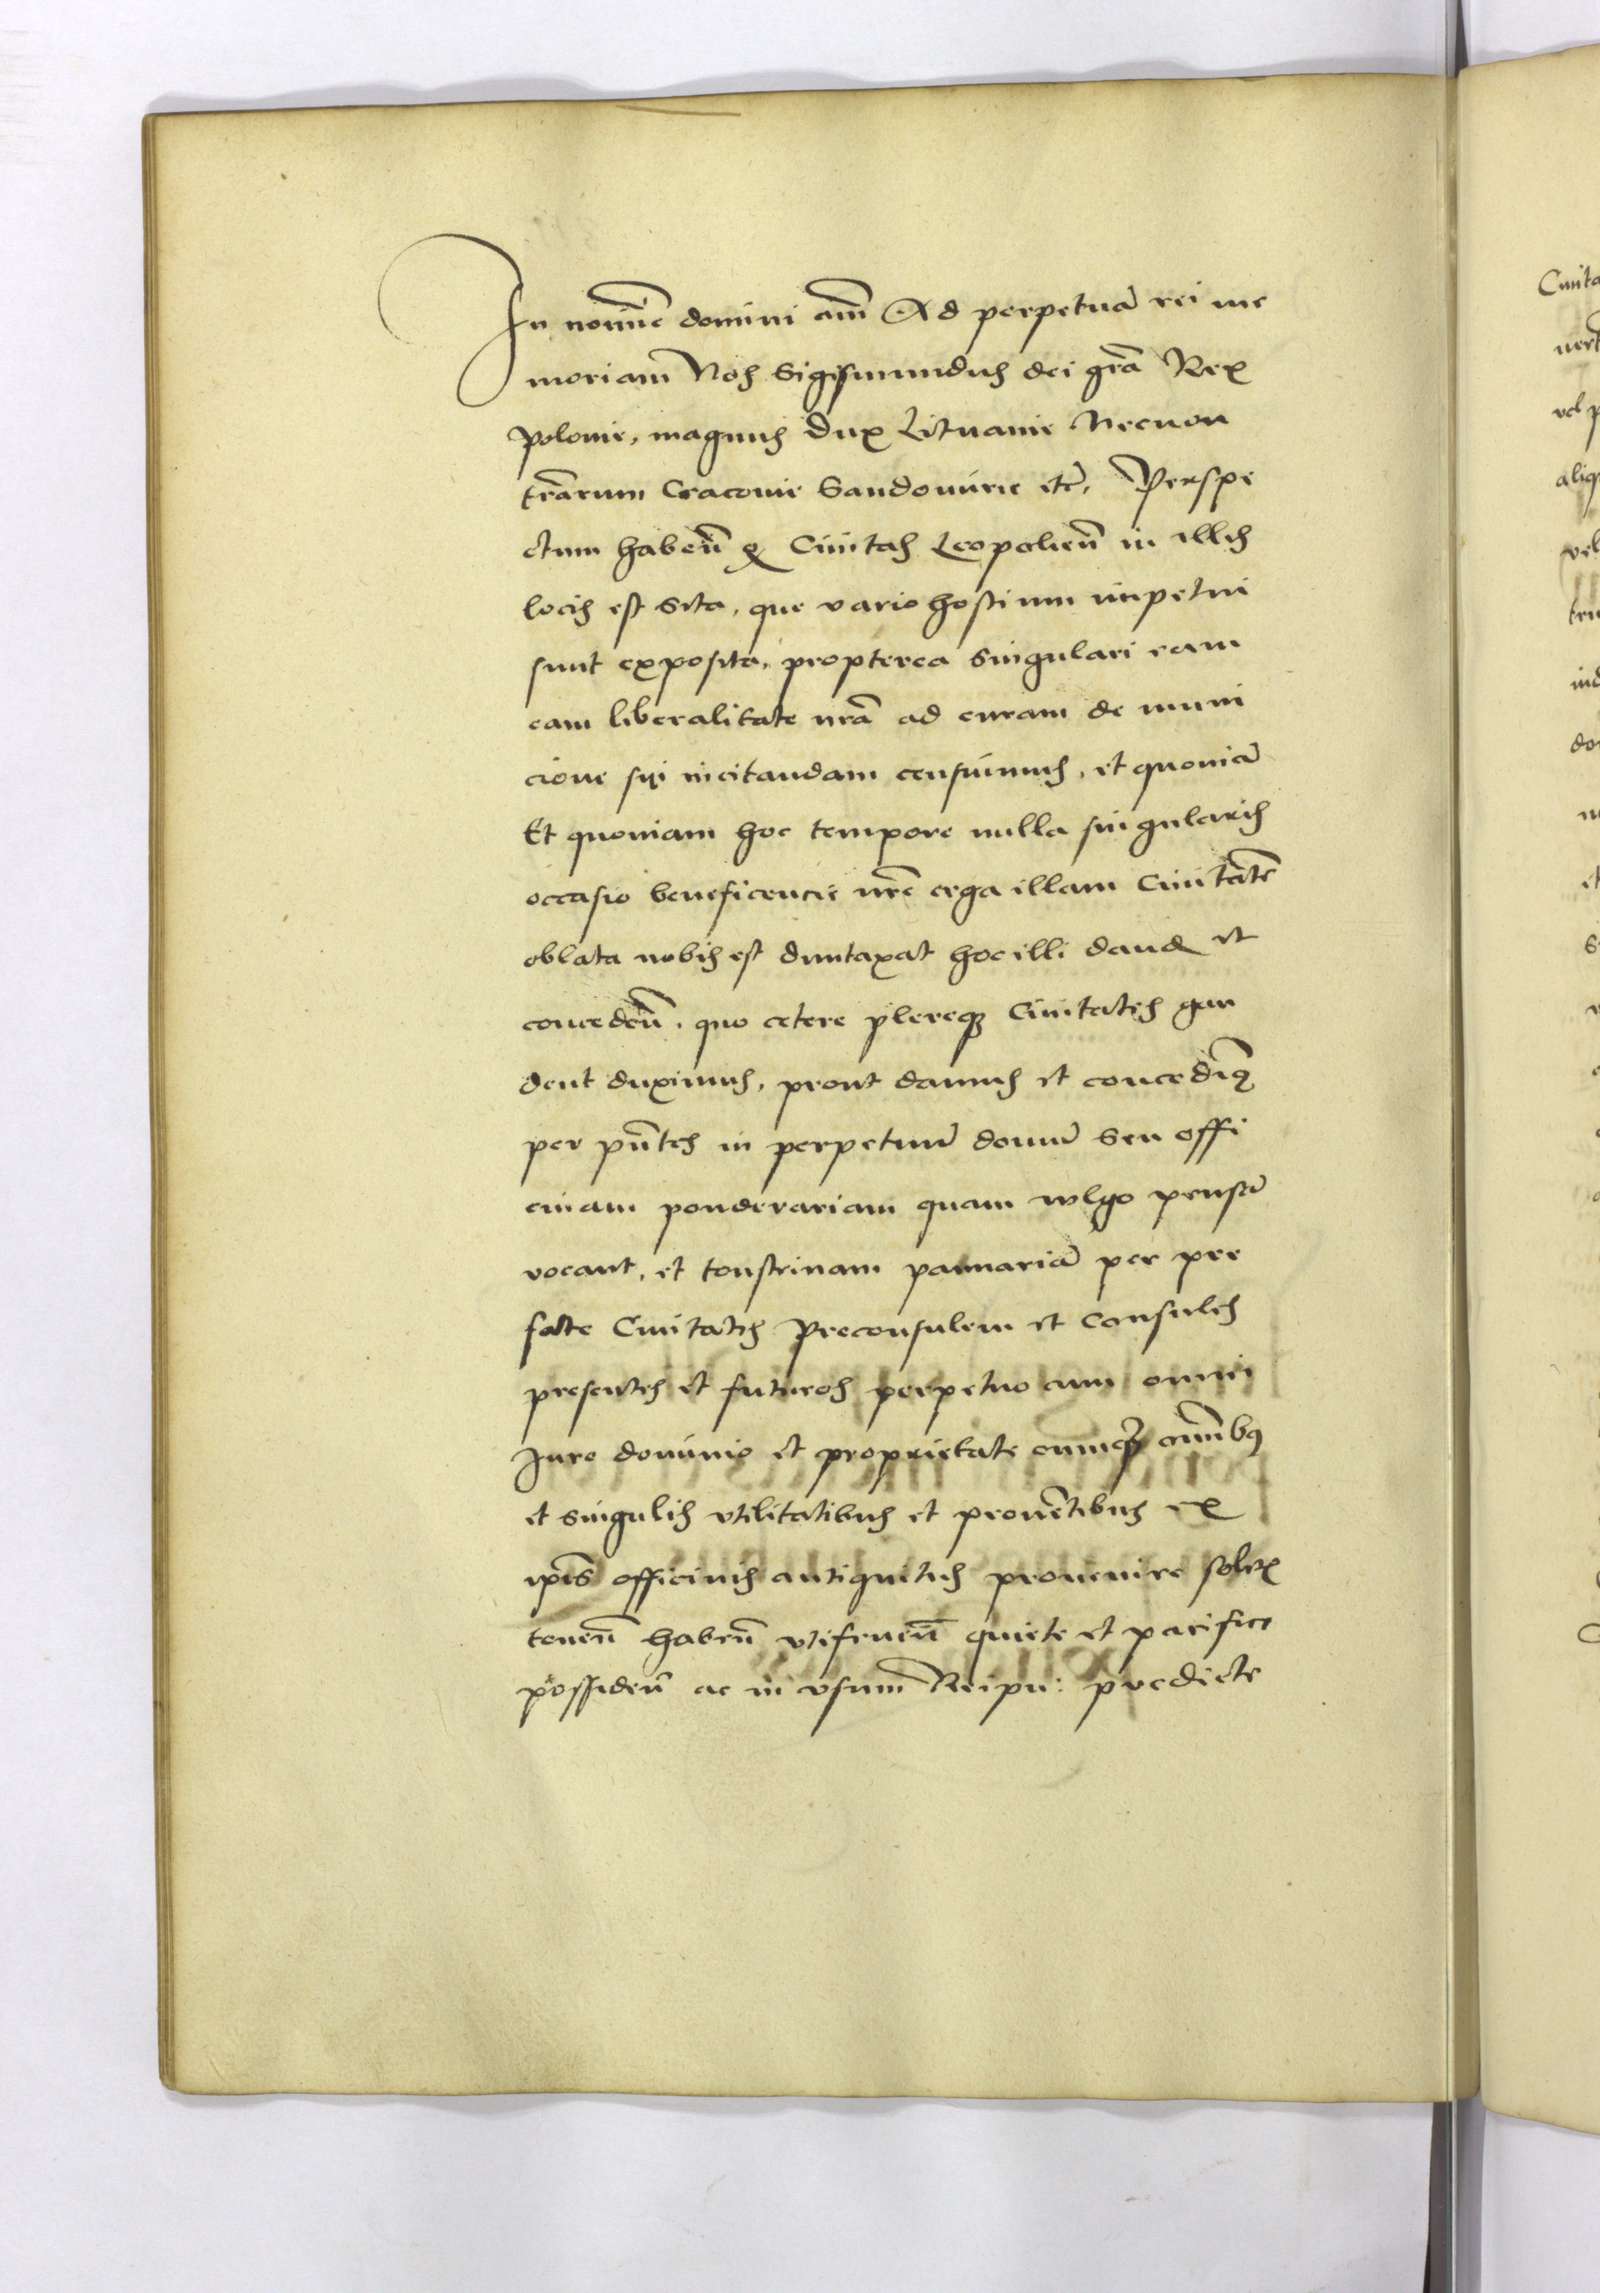 In nomĩe domini amẽ Ad perpetuã rei me
moriam Nos Sigismundus dei grã Rex
polonie, magnus dux Lituanie Necnon
terrãrum Cracovie Sandomirie etc̃, Perspe
ctum habeñ q Civitas Leopolieñ in illis
locis est sita, que vario hostium impetui
sunt exposita, propterea singulari eam
eam liberalitate nrã ad curam de muni
cione sui incitandam censuimus, et quoniã
Et quoniam hoc tempore nulla singularis
occasio beneficencie nrẽ erga illam Civitatẽ
oblata nobis est duntaxat hoc illi dand et
concedeñ, quo cetere plereqꝫ Civitates gau
dent duximus, prout damus et concedimꝰ
per pñtes in perpetuũ domũ seu offi
cinam ponderariam quam wlgo pensã
vocant, et tonstrinam pannariã per pre
fate Civitatis Preconsulem et Consules
presentes et futuros perpetuo cum omni
Jure dominio et proprietate cumqꝫ omĩbꝰ
et singulis utilitatibus et provẽtibus ex
ip̃is officinis antiquitus provenire solitꝭ
teneñ habeñ utifrueñ quiete et pacifice
possideñ ac in usum Reipu: predicte